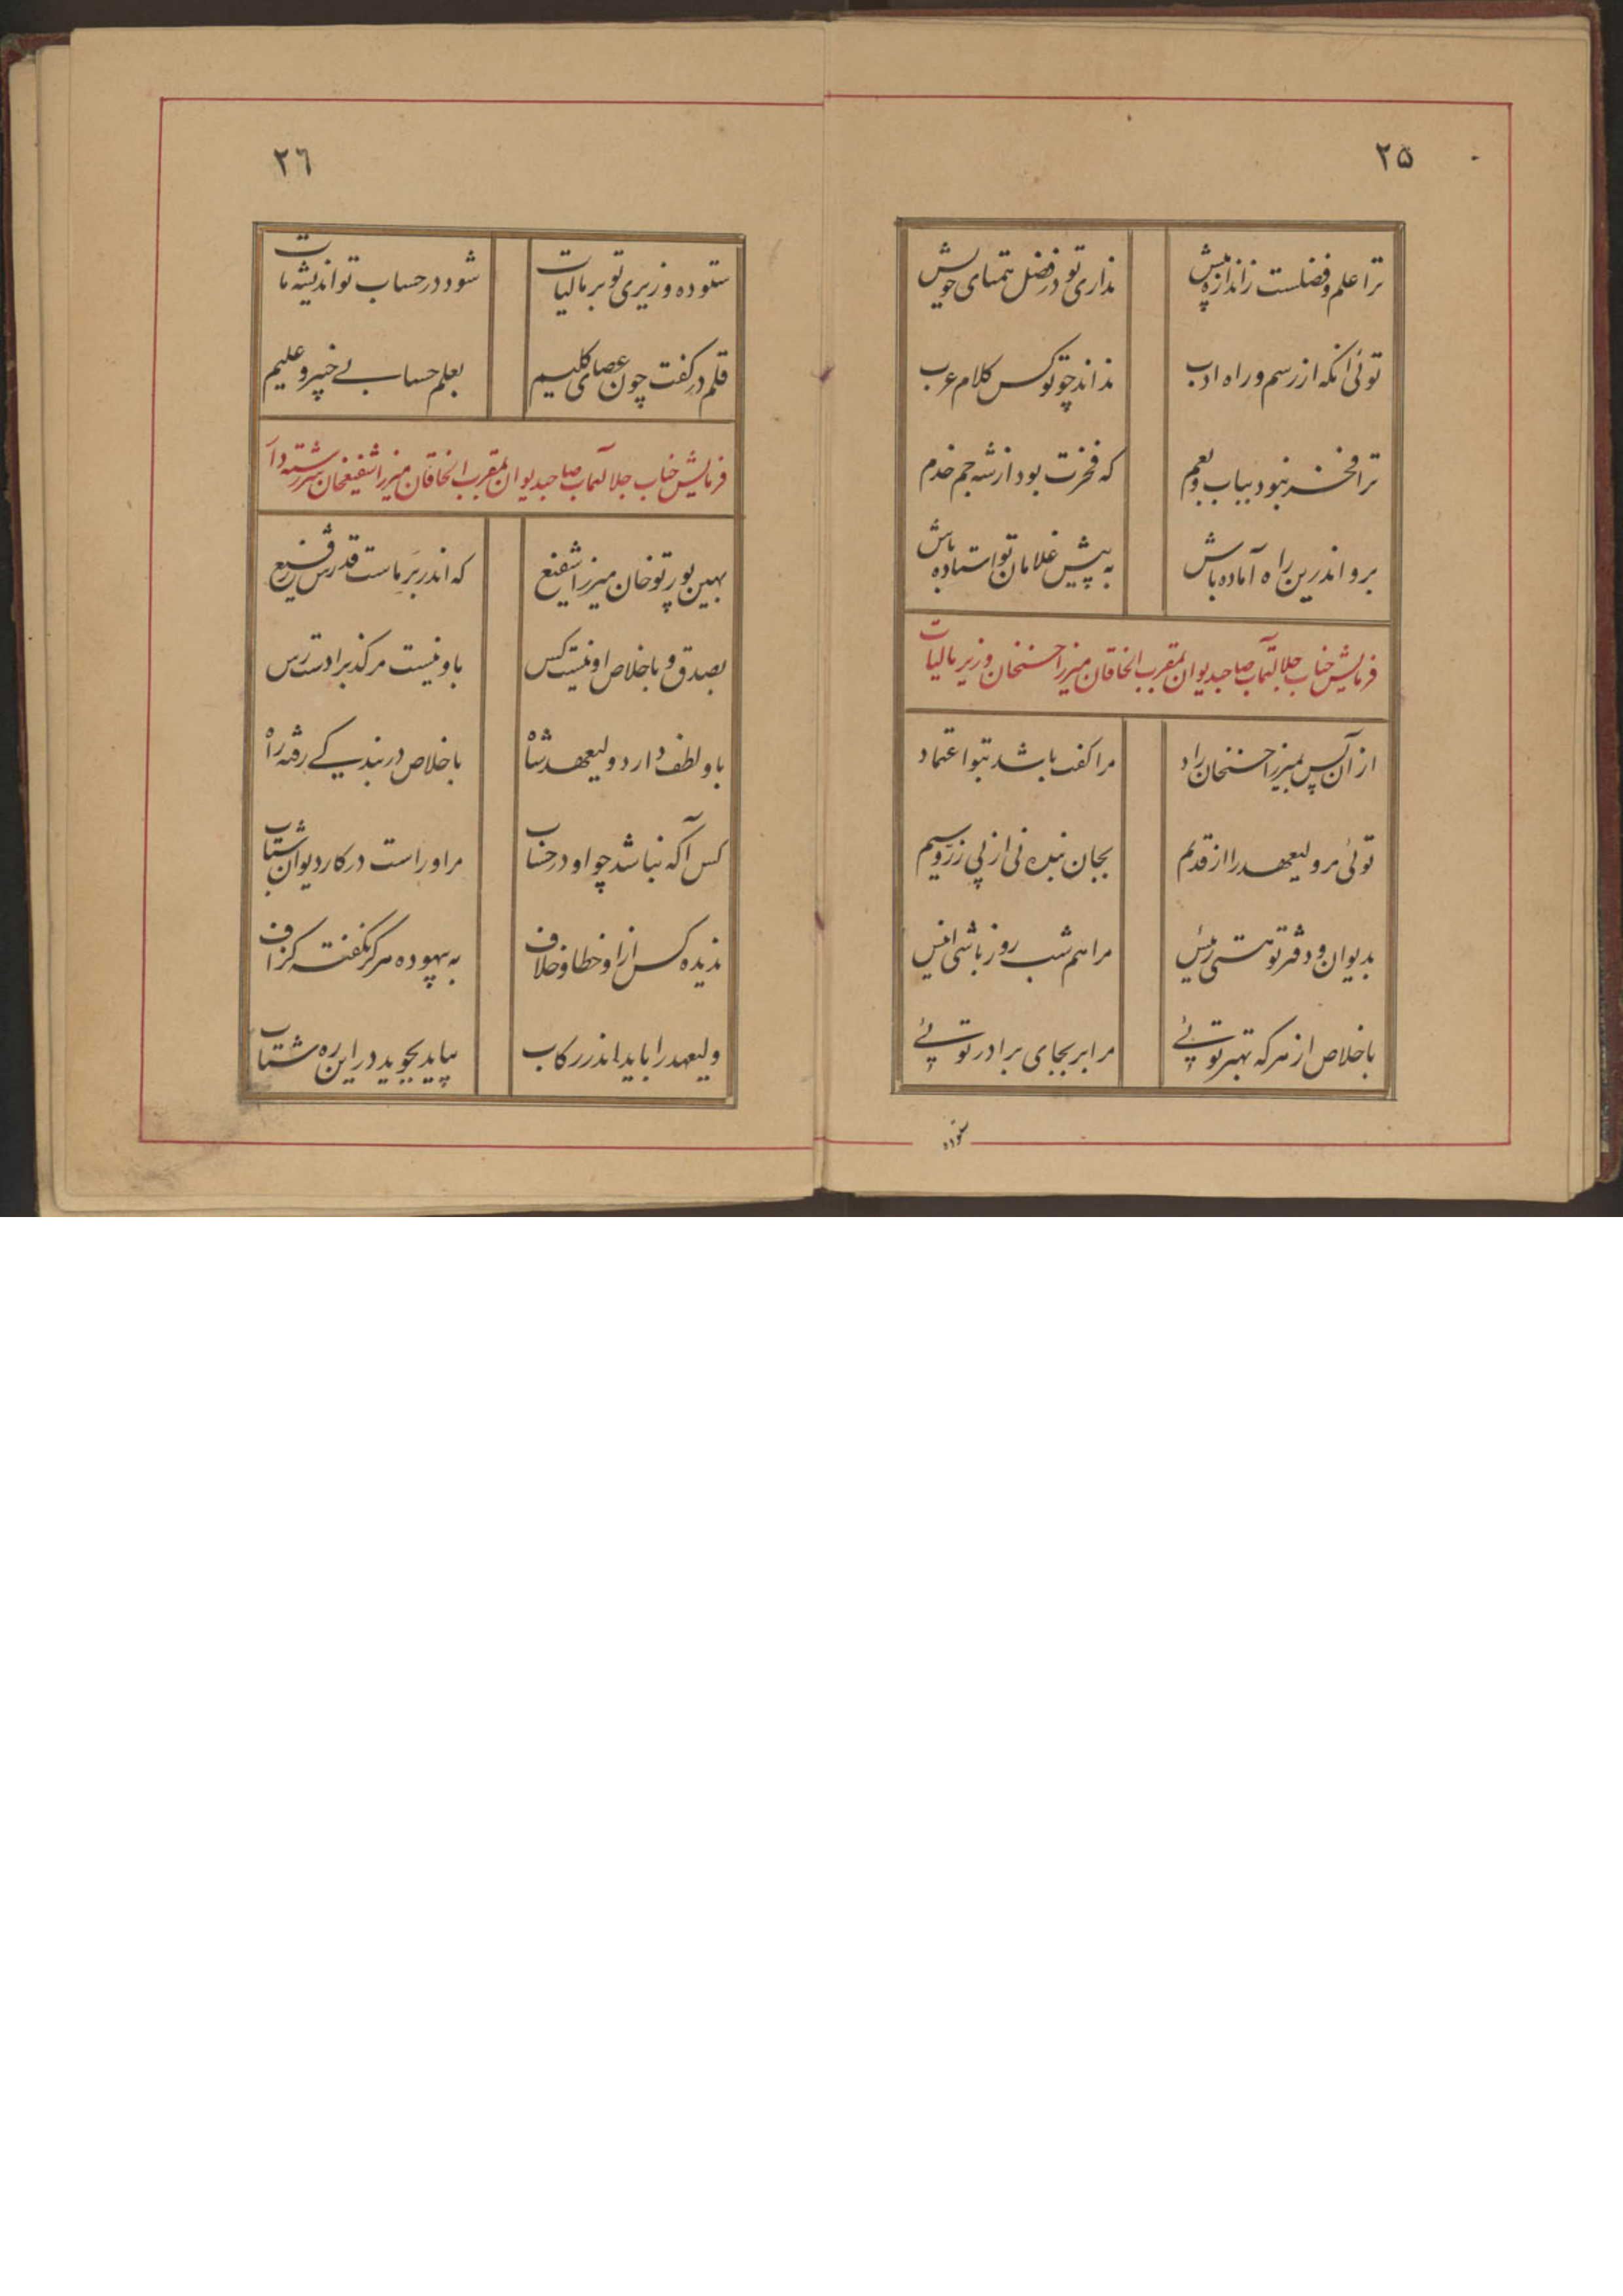 ۲۵
ترا علم و فضلست ز اندازه بیش نداری تو در فضل همتای خویش
توئی آنکه از رسم و راه ادب نداند چو تو کس کلام عرب
ترا فخر نبود بباب و بعم که فخرت بود از شه جم خدم
برو اندرین راه آماده باش به پیش غلامان تو استاده باش
فرمایش جناب جلالتمآب صاحبدیوان بمقرب الخاقان میرزا حسنخان وزیر مالیات
از آن پس بمیرزا حسنخان راد مرا گفت باشد بتو اعتماد
توئی مر ولیعهد را از قدیم بجان بنده نی از پی زرّ و سیم
بدیوان و دفتر تو هستی رئیس مرا هم شب روز باشی انیس
باخلاص از هر که بهتر توئی مرا بر بجای برادر توئی
ستوده
۲٦
ستوده وزیری تو بر مالیات شود در حساب تو اندیشه مات
قلم در کفت چون عصای کلیم بعلم حساب خبیر و علیم
فرمایش جناب جلالتمآب صاحبدیوان بمقرب الخاقان میرزا شفیعخان سررشته دار
بهین پور تو خان میرزا شفیع که اندر بَرِ ماست قدرش رفیع
بصدق و باخلاص او نیست کس باو نیست مر کذب را دسترس
باو لطف دارد ولیعهد شاه باخلاص در بندگی رفته راه
کس آگه نباشد چو او در حساب مر او راست در کار دیوان شتاب
ندیده کس از او خطا و خلاف به بیهوده هرگز نگفته گزاف
ولیعهد را باید اندر رکاب بیاید بجوید در این ره شتاب